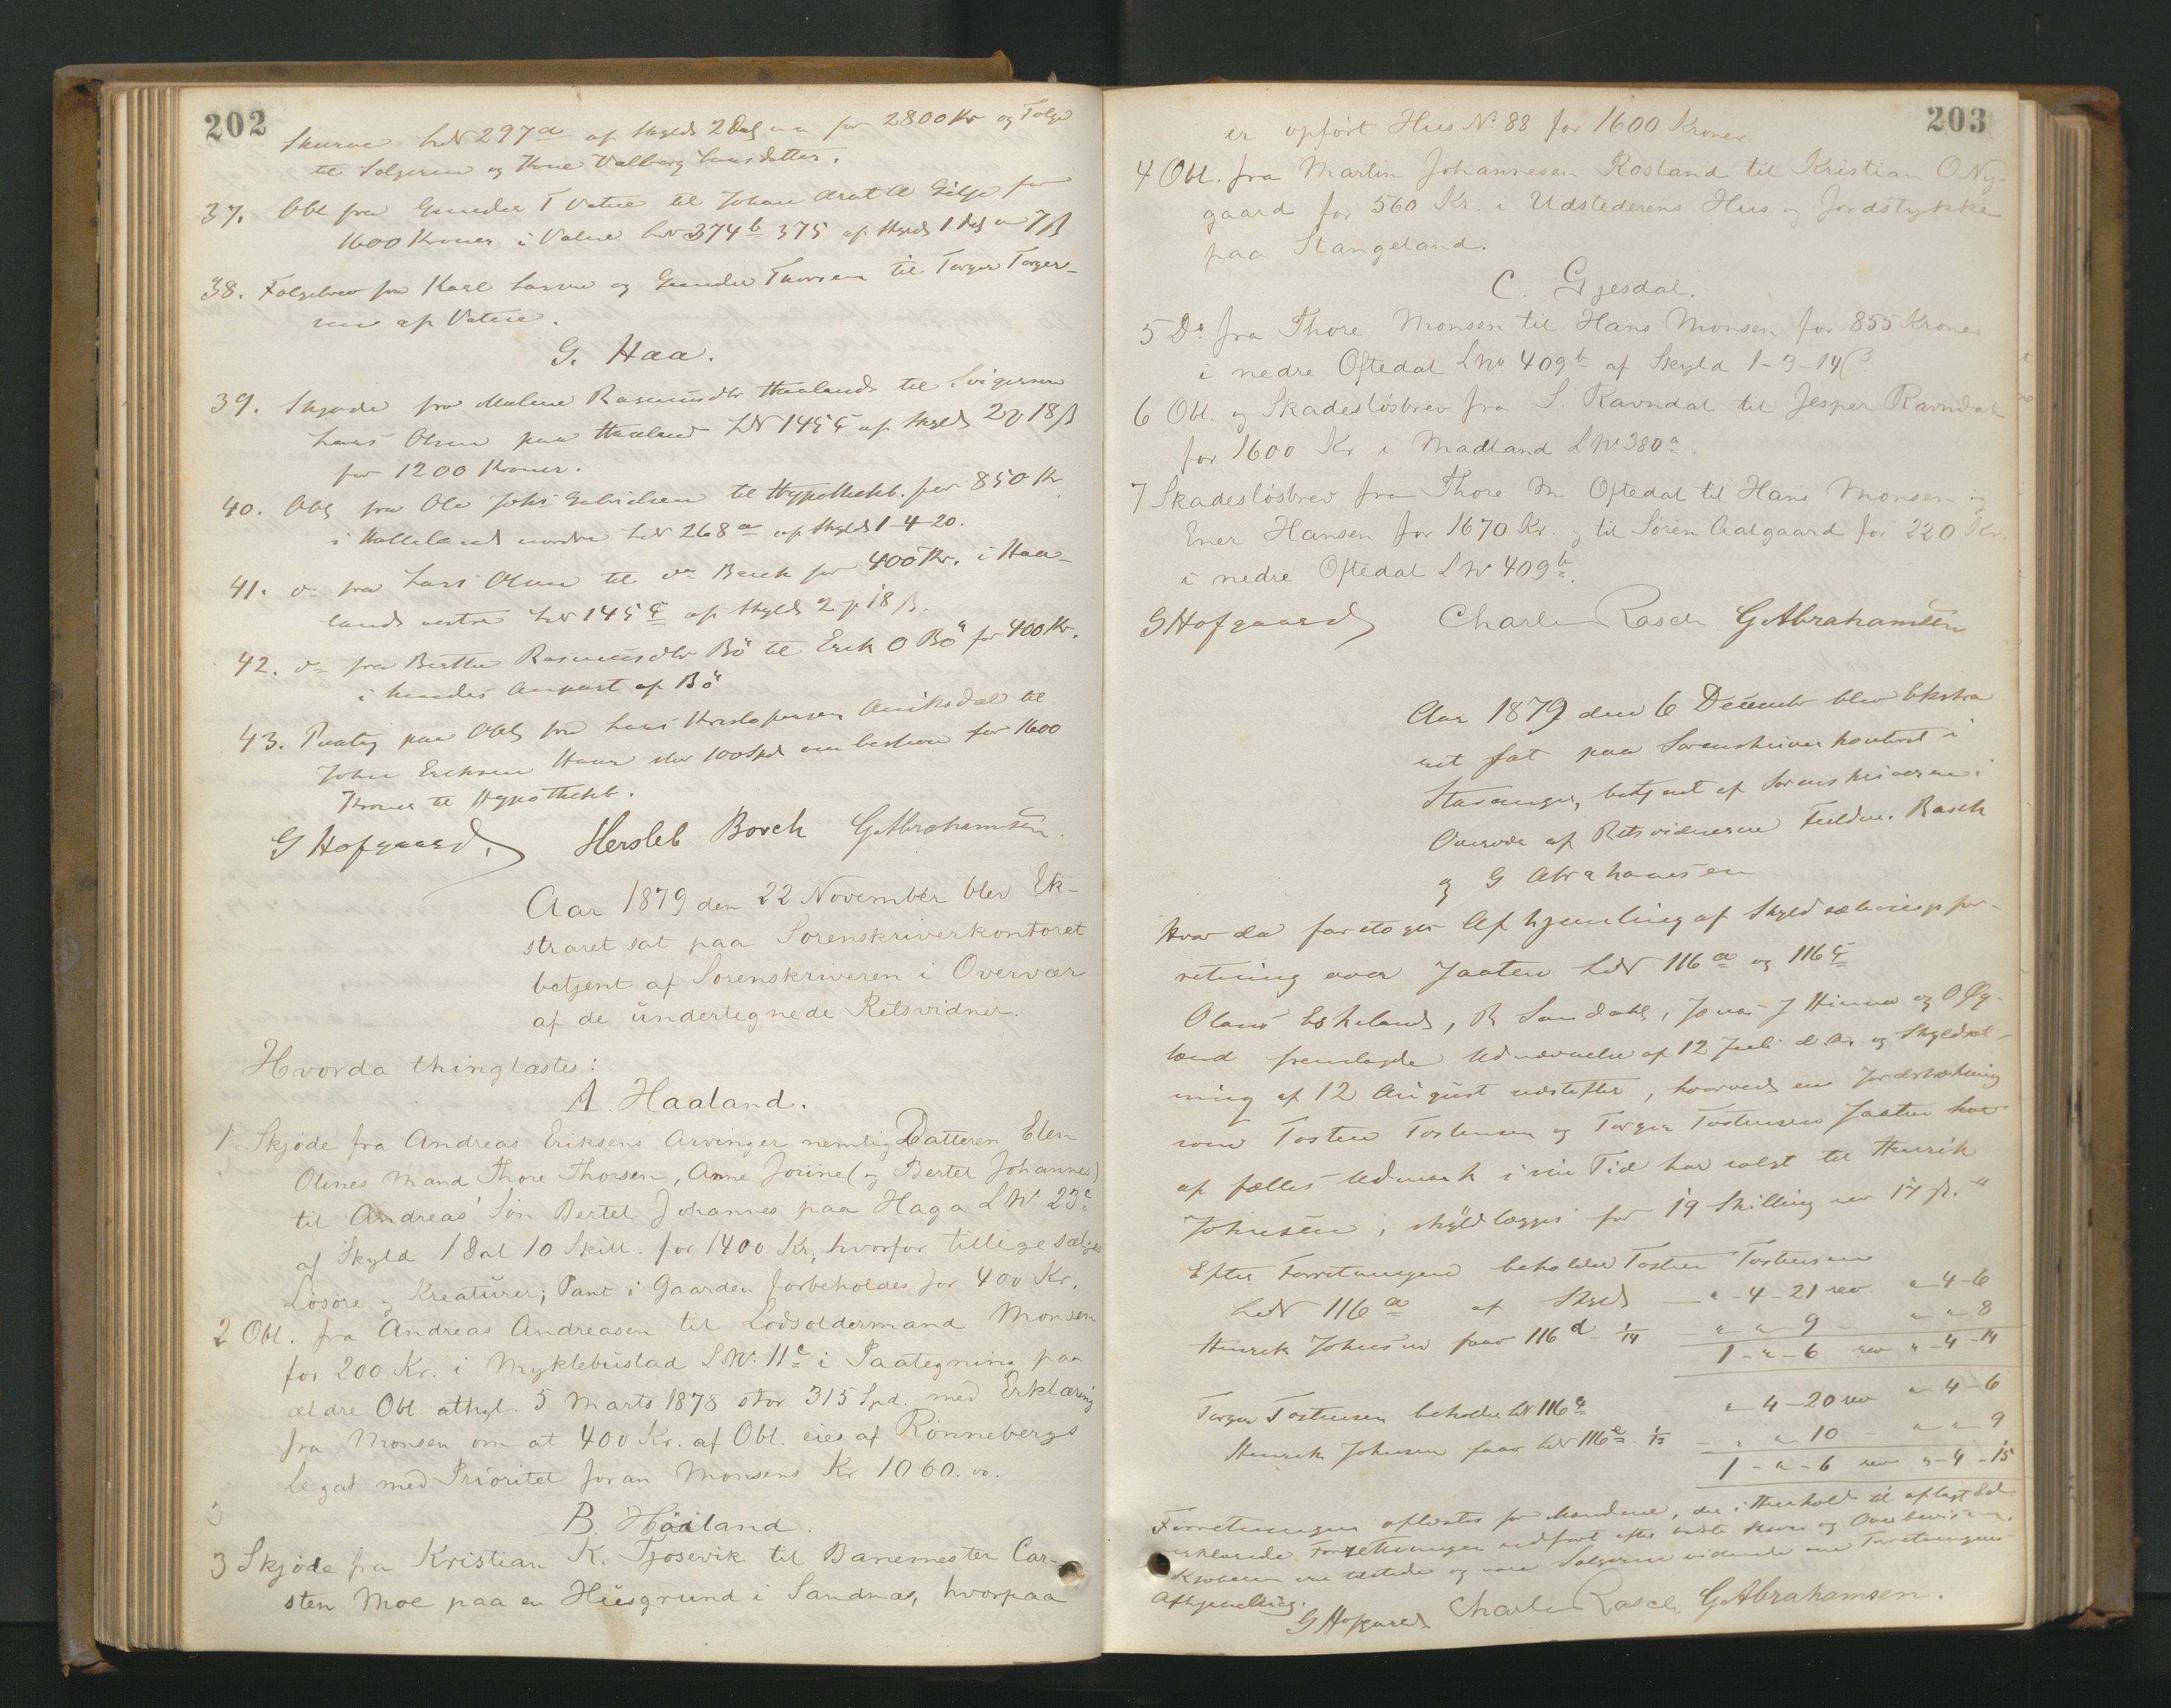 202
Skurve LN 297a af Skyld 2 Dal for 2800 Kr og Følge
til Sælgeren og Kone Valborg Larsdatter.
37. Obl fra Gunder T Vatne til Johan Gilje for
1600 Kroner i Vatne LN 374b 375 af Skyld 1 Dal 7 ß
38. Følgebrev fra Karl Larsen og Gunder Thorsen til Torger Torger-
sen af Vatne.
G. Haa.
39. Skjøde fra Malene Rasmusdtr Haaland til Svigersøn
Lars Olsen paa Haaland LN 145c af Skyld 2 18 ß
for 1200 Kroner.
40. Obl fra Ole Johs Gabrielsen til Hypothekb. for 850 Kr
i nordre LN 268a af Skyld 1-4-20.
41. do fra Lars Olsen til do Bank for 400 Kr. i Haa-
land vestre LN 145c af Skyld 2 18 ß.
42. do fra Berthe Rasmusdtr Bö til Erik O Bö for 400 Kr.
i hendes Anpart af Bö
43. Paateg paa Obl fra Lars Kristofersen Aniksdal til
John Eriksen Haar stor 100 Spd for 1600
Kroner til Hypothekb.
G Hofgaard. Hersleb Borch G. Abrahamsen.
Aar 1879 den 22 November blev Ek-
straret sat paa Sorenskriverkontoret
betjent af Sorenskriveren i Overvær
af de undertegnede Retsvidner.
Hvorda thinglæstes:
A. Haaland.
1 Skjöde fra Andreas Eriksens Arvinger nemlig Datteren Elen
Olines Mand Thore Thorsen, Anne Jorine (og Bertel Johannes)
til Andreas' Sön Bertel Johannes paa Haga LN. 23c
af Skyld 1 Dal 10 Skill. for 1400 Kr, hvorfor tillige sælges
Lösöre og Kreaturer; Pant i Gaarden forbeholdes for 400 Kr.
2 Obl. fra Andreas Andreasen til Lodsoldermand Monsen
for 200 Kr. i Myklebustad LN. 11c i Paategning paa
ældre Obl. athgl. 5 Marts 1878 stor 315 Spd. med Erklæring
fra Monsen om at 400 Kr. af Obl. eies af Rönnebergs
legat med Prioritet foran Monsens Kr 1060. oo.
3
B. Höiland.
3 Skjöde fra Kristian K. Tjosevik til Banemester Car-
sten Moe paa en Husgrund i Sandnæs, hvorpaa
203
er opfört Hus N. 88 for 1600 Kroner.
4 Obl. fra Martin Johannesen Rosland til Kristian O Ny-
gaard for 560 Kr. i Udstederens Hus og Jordstykke
paa Stangeland.
C. Gjesdal.
5 Do fra Thore Monsen til Hans Monsen for 855 Kroner
i nedre Oftedal LNr 409b af Skyld 1-3-14 ß
6 Obl. og Skadeslösbrev fra S. Ravndal til Jesper Ravndal
for 1600 Kr i Madland LN. 380a.
7 Skadeslösbrev fra Thore M. Oftedal til Hans Monsen og
Ener Hansen for 1670 Kr. og til Sören Aalgaard for 220 Kr.
i nedre Oftedal LN 409b.
G Hofgaard Charles Rasch G. Abrahamsen
Aar 1879 den 6 December blev Ekstra
ret sat paa Sorenskriverkontoret i
Stavanger, betjent af Sorenskriveren i
Overvær af Retsvidnerne Fuldm. Rasch
og G Abrahamsen
Hvor da foretoges Afhjemling af Skyldsætningsfor-
retning over Jaaten LN 116a og 116c
Olaus Eskeland, B Sandahl, Jonas J Hinna og O Øg-
lænd fremlagde Udnævnelse af 12 Juli d. A. og Skyldsæt-
ning af 12 August næstefter, hvorved en Jordstrækning
som Tosten Tostensen og Torger Tostensen Jaaten har
af fælles Udmark i sin Tid har solgt til Henrik
Johnsen, skyldlægges for 19 Skilling rev 17 ß.
Efter Forretningen beholder Tosten Tostensen
LN 116a af Skyld - " - 4 - 21 rev " 4 - 6
Henrik Johnsen faar 116d 1/14 - " " 9 - " " 8
1 - " - 6 rev " - 4 - 14
Torger Tostensen beholder LN 116c " 4 - 20 rev " 4 - 6
Henrik Johnsen faar LN 116e 1/13 - " " 10 - " " 9
1 - " - 6 rev " - 4 - 15
Forretningen oplæstes for Mændene, der i Henhold til aflagt Ed
erklærede Forretningen udført efter bedste Skjøn og Overbevisning.
Kjøberen var tilstede og vare Sælgerne vidende om Forretningens
Afhjemling.
G Hofgaard Charles Rasch G. Abrahamsen.